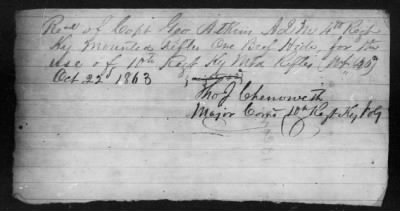 Recd of Capt Geo Atkins A Q M 4th Regt
Ky Mounted Rifles One Beef Hide, for the
use of 10th Regt Ky Mtd Rifles
Oct 22d 1863
Tho J Chenoweth
Major Comg 10th Regt Ky Vols